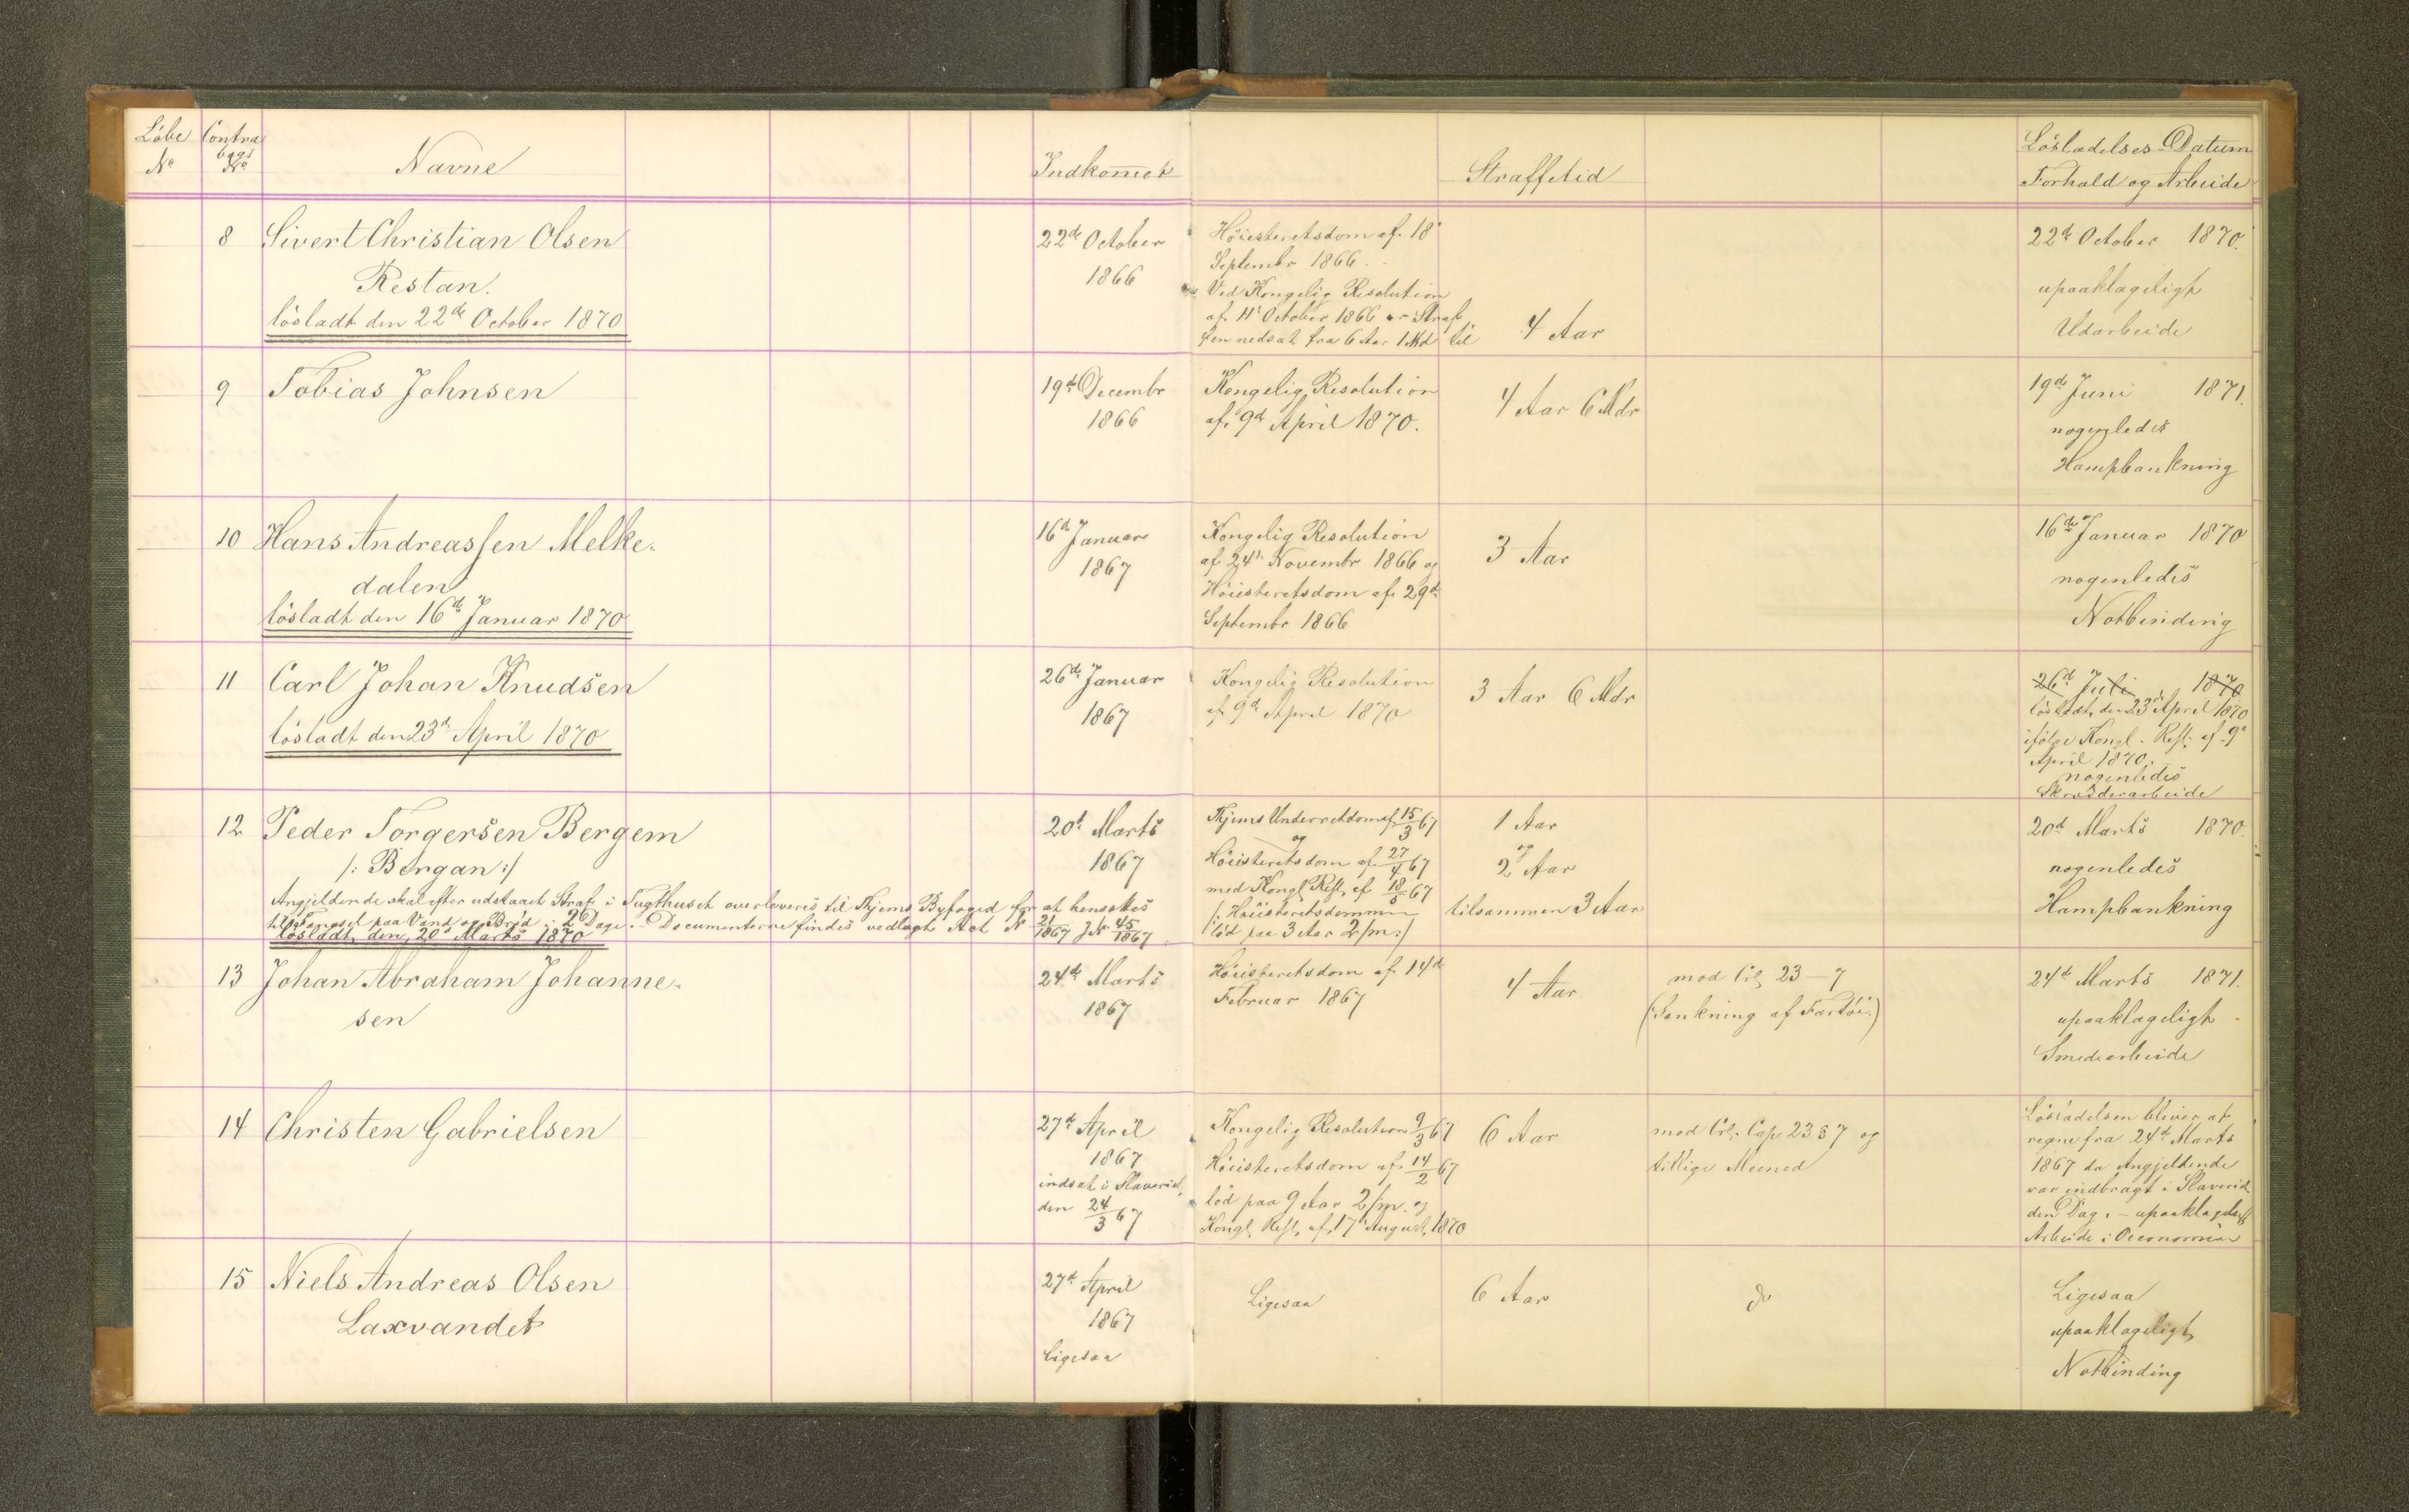 Löbe Contra
No bogs No
Navne
Indkommet
Straffetid
Lösladelses-Datum
Forhold og Arbeide
8 Sivert Christian Olsen
Restan.
lösladt den 22de October 1870
22de October
1866
Höiesteretsdom af 18'
Septembr 1866.
Ved Kongelig Resolution
af 11' October 1866 er Straf
fen nedsat fra 6 Aar 1 Md til
4 Aar
22de October 1870.
upaaklageligt
Udarbeide
9 Tobias Johnsen
19de Decembr
1866
Kongelig Resolution
af 9d April 1870.
4 Aar 6 Mdr
19de Juni 1871.
nogenledes
Hampbankning
10 Hans Andreassen Melke-
dalen
lösladt den 16de Januar 1870
16de Januar
1867
Kongelig Resolution
af 24' Novembr 1866 og
Höiesteretsdom af 29de
Septembr 1866
3 Aar
16de Januar 1870
nogenledes
Notbinding
11 Carl Johan Knudsen
lösladt den 23de April 1870
26de Januar
1867
Kongelig Resolution
af 9d April 1870
3 Aar 6 Mdr
26d Juli 1870
lösladt den 23' April 1870
ifölge Kongl. Resl. af 9d
April 1870.
nogenledes
Skrædderarbeide
12 Peder Torgersen Bergem
/: Bergan :/
Angjeldende skal efter udstaaet Straf i Tugthuset overleveres til Thjems Byfoged for at hensættes
til Fængsel paa Vand og Bröd i 26 Dage. - Documenterne findes vedlagt Act No 21/1867 J No 45/1867
lösladt den 20d Marts 1870
20d Marts
1867
Thjems Underretsdom af 15/3 67
og
Höiesteretsdom af 27/4 67
med Kongl Resl. af 18/5 67
/: Höiesteretsdommen
löd paa 3 Aar 2/m :/
1 Aar
og
2 Aar
tilsammen 3 Aar
20d Marts 1870.
nogenledes
Hampbankning
13 Johan Abraham Johanne-
sen
24de Marts
1867
Höiesteretsdom af 14d
Februar 1867
4 Aar
mod Crl. 23-7
(Sænkning af Fartöi.)
24de Marts 1871.
upaaklageligt
Smedearbeide
14 Christen Gabrielsen
27de April
1867
indsat i Slaveriet
den 24/3 67
Kongelig Resolution 9/3 67
Höiesteretsdom af 14/2 67
löd paa 9 Aar 2/m. og
Kongl. Resl. af 17' August 1870
6 Aar
mod Crl. Cap 23 § 7 og
tillige Meened
Lösladelsen bliver at
regne fra 24d Marts
1867 da Angjeldende
var indbragt i Slaveriet
den Dag. - upaaklageligt
Arbeide i Oeconomien
15 Niels Andreas Olsen
Laxvandet
27de April
1867
ligesaa
Ligesaa
6 Aar
do
Ligesaa
upaaklageligt
Notbinding